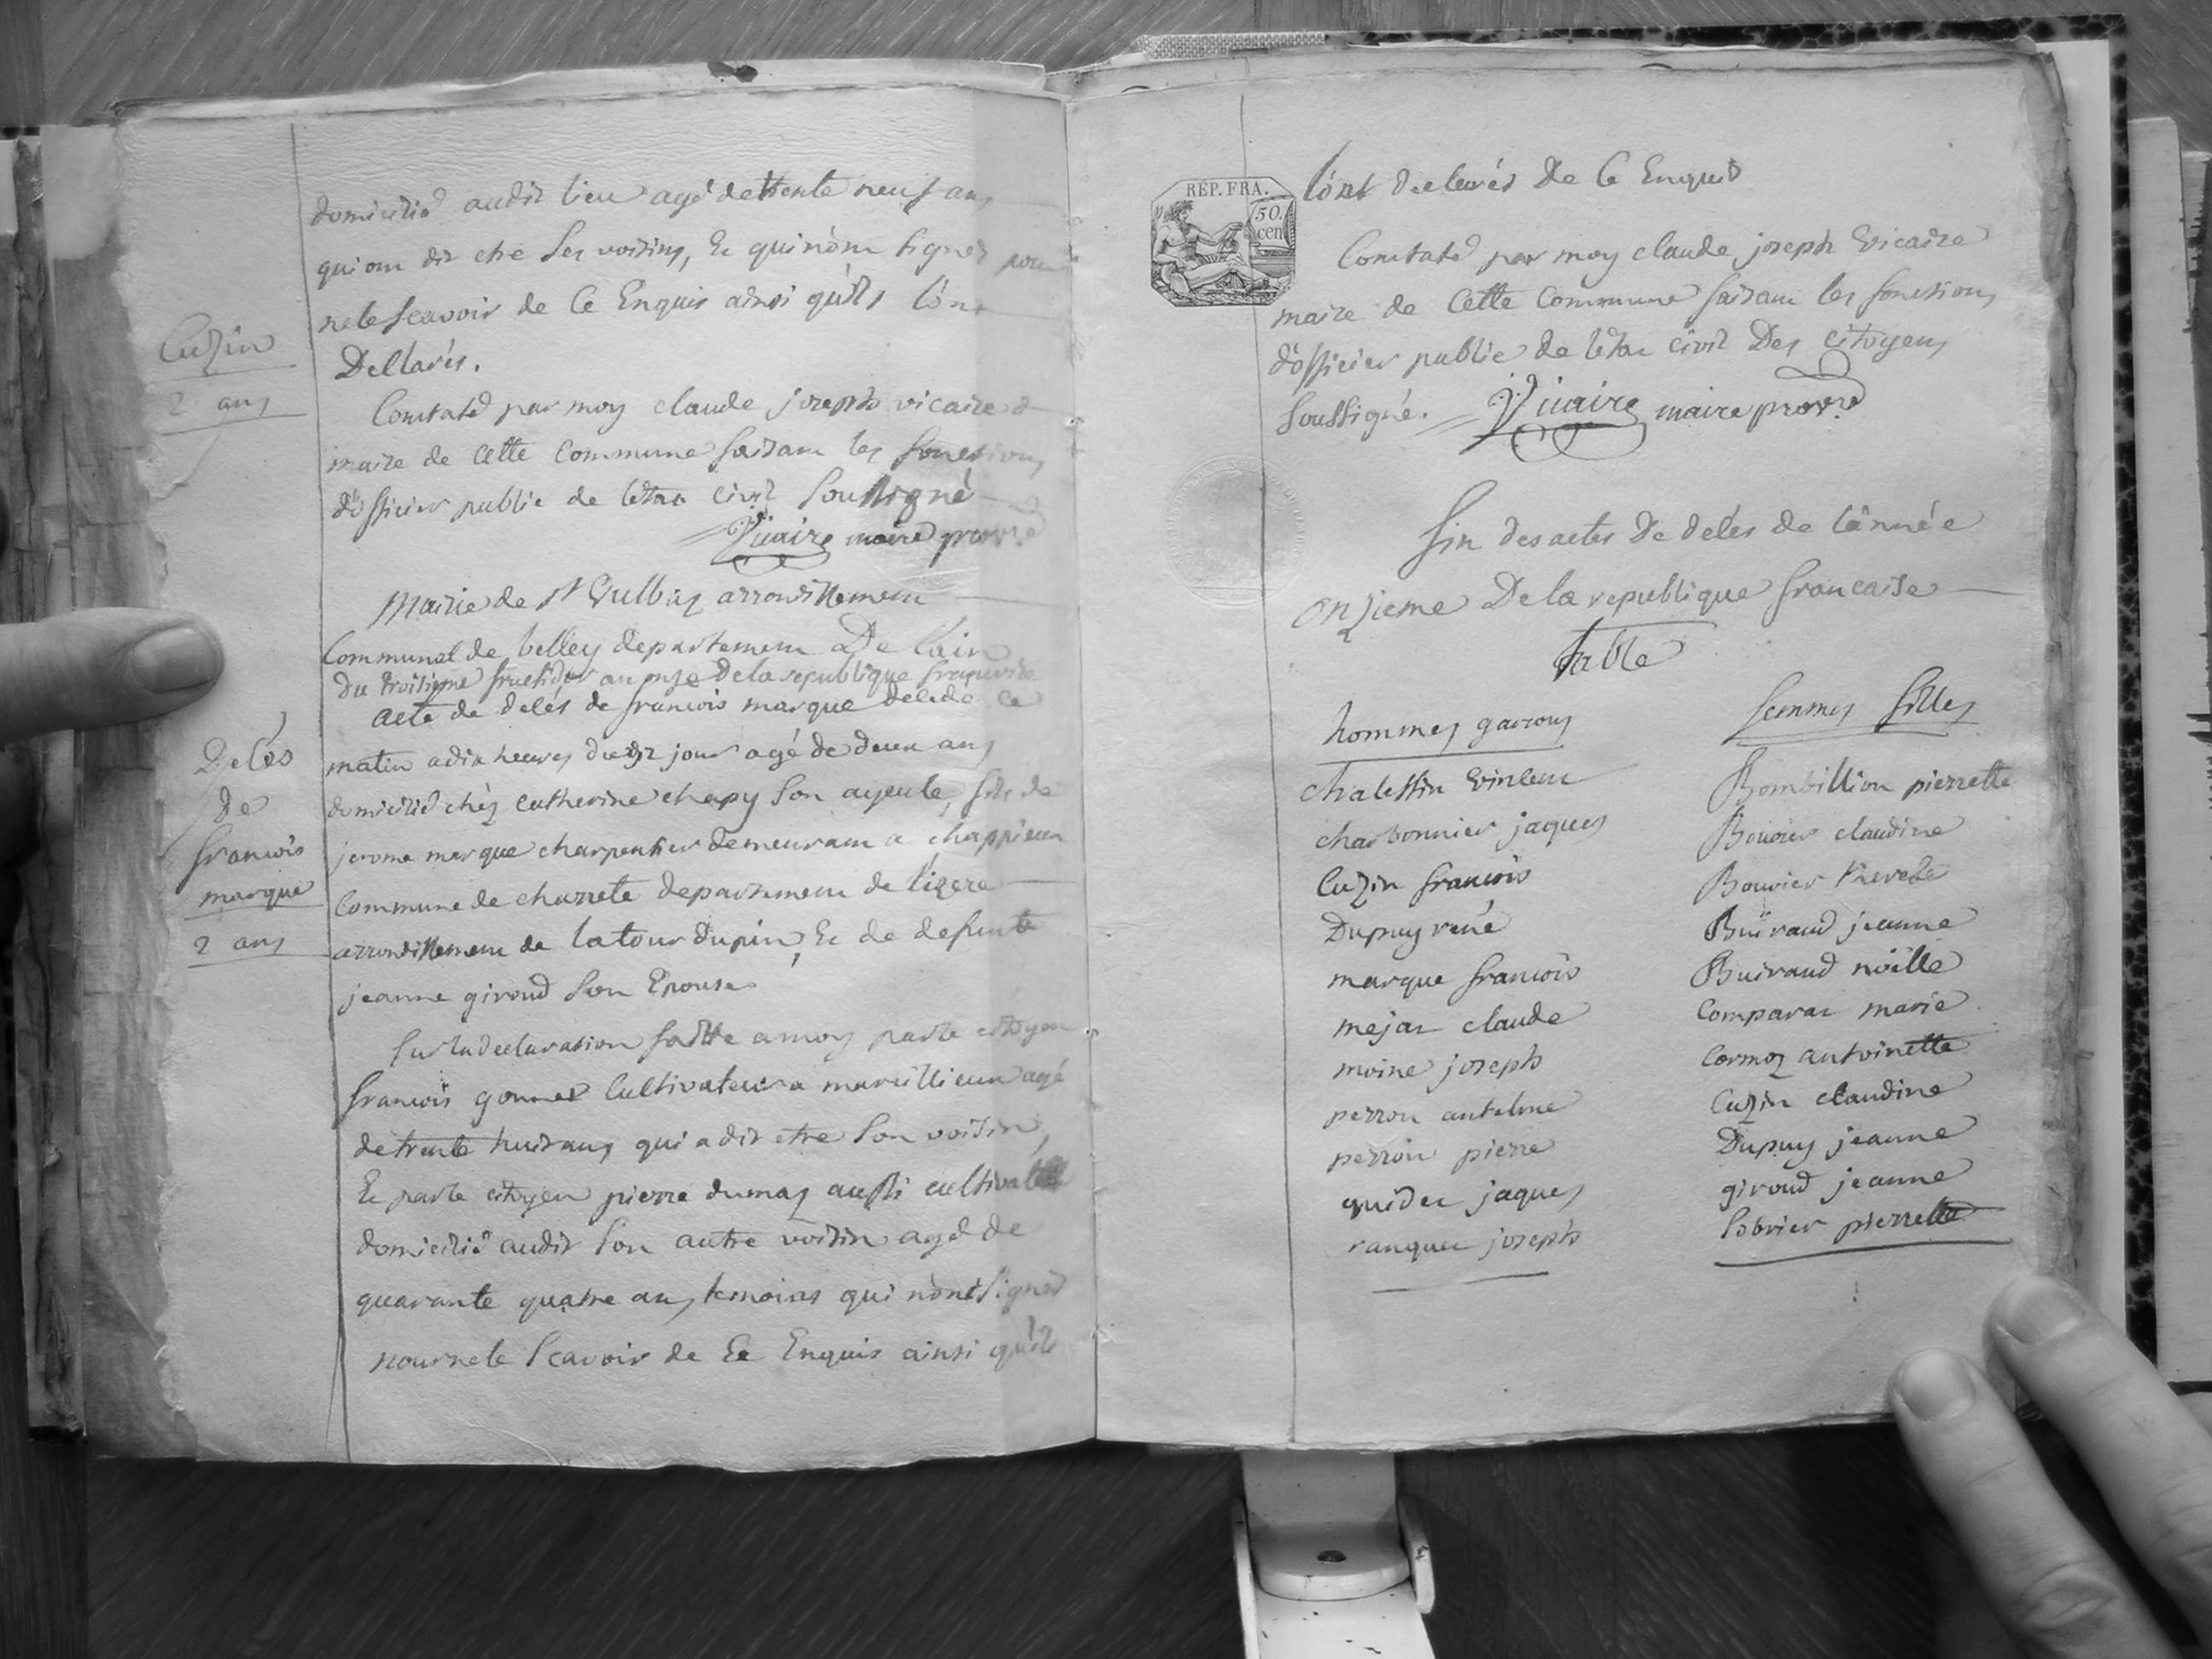 domicilié audit lieu agé de trente neuf ans
qui ont dit etre ses voisins, Et qui nont signés pour
ne le scavoir de Ce Enquis ainsi qu'ils l'ont
Dellarés.
Cuzin
2 ans
Constaté par moy claude joseph vicaire
maire de cette Commune faisant les fonctions
d'officier public de l'etat civil Soussigné
Vicaire maire provre
Mairie de St Gulbas arrondissement
Communal de belley departement De lain
Du troisieme fructidor an onze de la republique francaise
acte de delés de francois marque decede ce
Delés
de
francois
marque
2 ans
matin a dix heures dudit jour agé de deux ans
domicilié chéz catherine chapy son ayeule, fils de
jerome marque charpentier demeurant a chappieux
Commune de charrete departement de l'izere
arrondissement de latour dupin, Et de defunte
jeanne giroud son Epouse
Sur la declaration faitte a moy par le citoyen
francois gonnet Cultivateur a marcillieux agé
de trente huit ans qui a dit etre son voisin,
Et par le citoyen pierre dumas aussi cultivateur
domicilié audit son autre voisin agé de
quarante quatre ans temoins qui n'ont signés
pour ne le scavoir de Ce Enquis ainsi qu'ils
RÉP. FRA.
50.
cen
l'ont declarés De Ce Enquis
Constaté par moy claude joseph Vicaire
maire de Cette Commune faisant les fonctions
d'officier public de l'etat civil Des citoyens
soussigné. Vicaire maire provre
fin des actes De delés de l'année
onzieme De la republique francaise
Table
hommes garcons
chalessin vincent
charbonnier jaques
Cuzin francois
Dupuy rené
marque francois
mejat claude
moine joseph
perron antelme
perron pierre
quidet jaques
ranquet joseph
femmes filles
Bombillion pierrette
Bouvier claudine
Bouvier therese
Buiraud jeanne
Buiraud noëlle
Comparat marie
Cormoz antoinette
Cuzin claudine
Dupuy jeanne
giroud jeanne
Sobrier pierrette